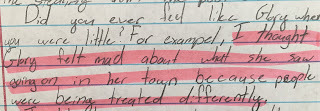 Did you ever feel like Glory when
you were little? For exampel, I thought
Glory felt mad about what she saw
going on in her town because people
were being treated differently.